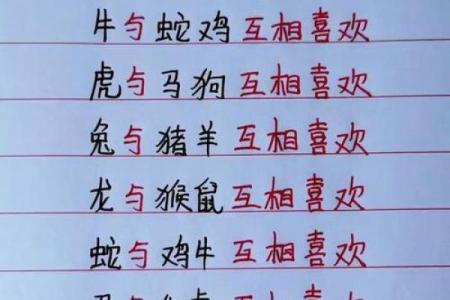 牛与蛇鸡互相喜欢
虎与马狗互相喜欢
兔与猪羊互相喜欢
龙与猴鼠互相喜欢
蛇与鸡牛互相喜欢